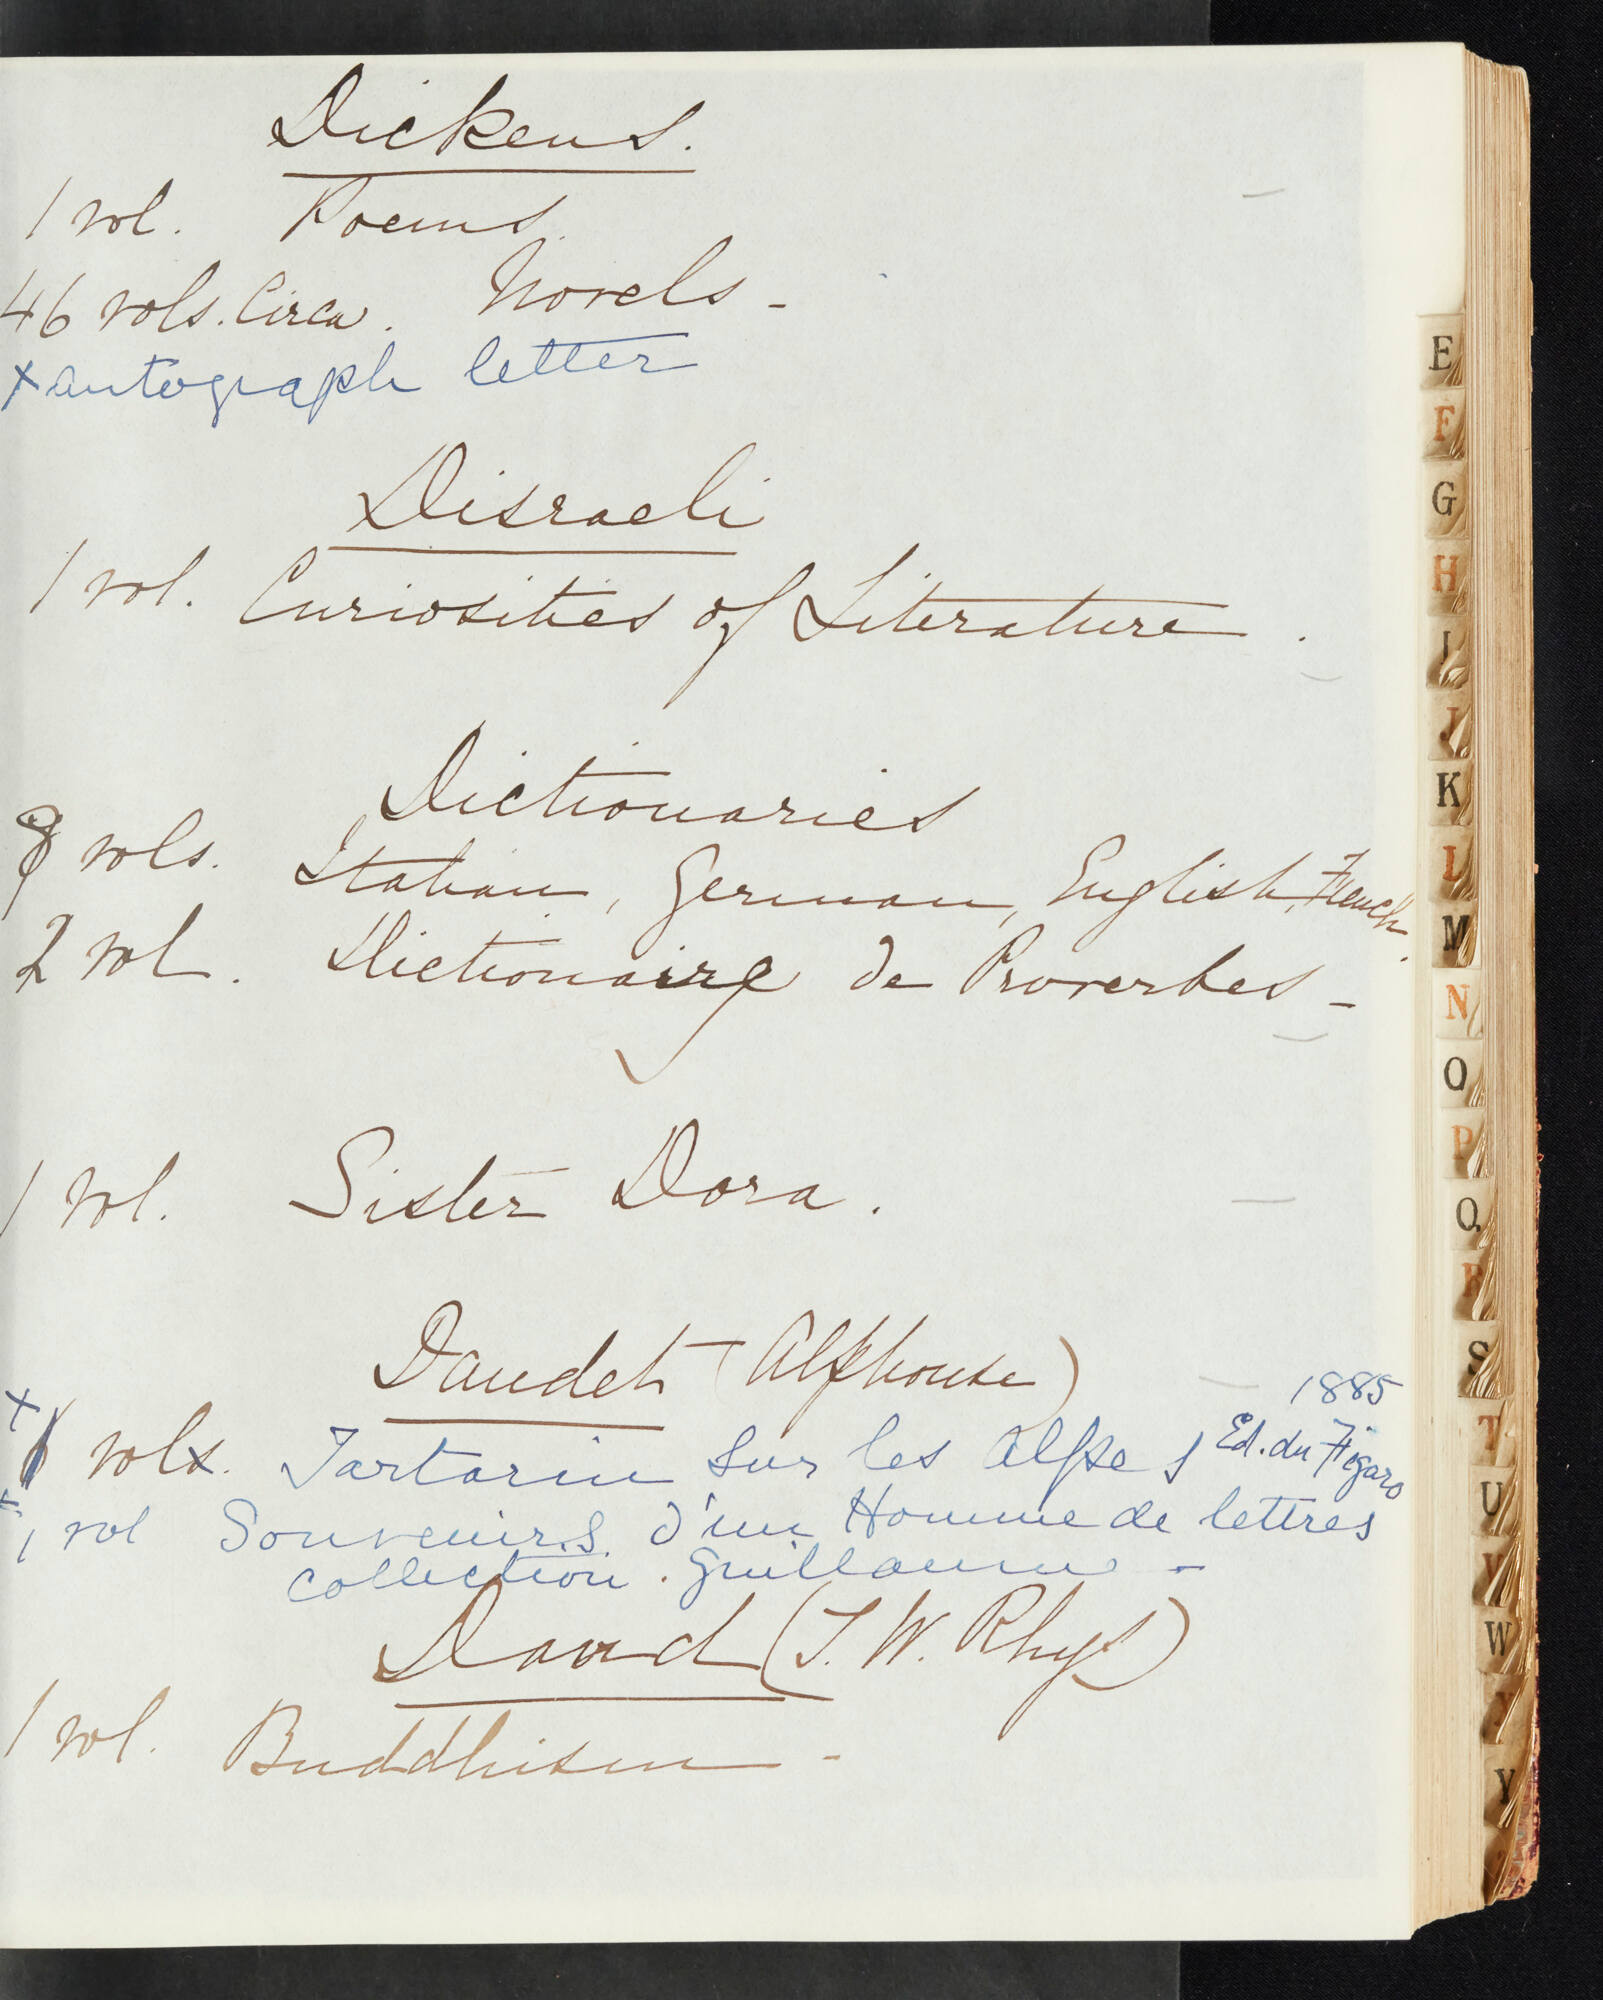 Dickens.
1 vol. Poems.
46 vols. Circa. Novels -
x autograph letter
Disraeli
1 vol. Curiosities of Literature.
Dictionaries
vols. Italian, German, English, French.
2 vol. Dictionaire de Proverbes -
1 vol. Sister Dora.
Daudet (Alphonse)
1885
x 1 vols. Tartarin sur les Alpes Ed. du Figaro
x 1 vol Souvenirs d'un Homme de lettres
collection. Guillaume -
David (T. W. Rhys)
1 vol. Buddhism -
E
F
G
H
I
J
K
L
M
N
O
P
Q
R
S
T
U
V
W
X
Y